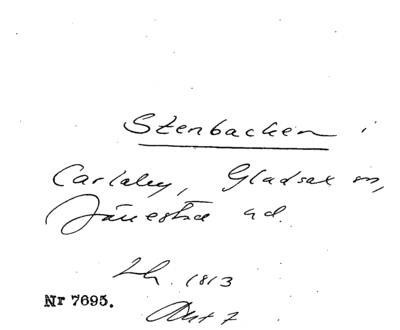 Stenbacken i
Carlaby, Gladsax sn,
Järrestad hd.
Lh. 1813
Nr 7695. Akt 7